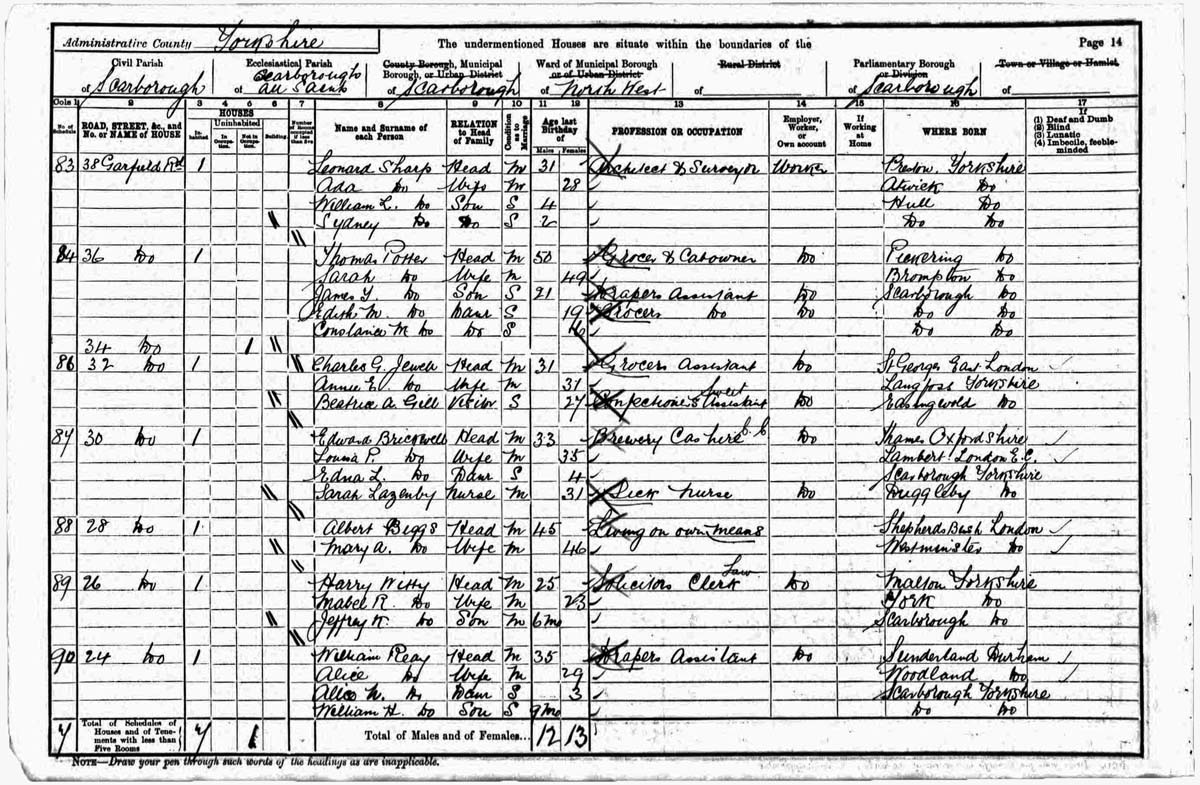 Administrative County Yorkshire The undermentioned Houses are situate within the boundaries of the Page 14
Civil Parish Ecclesiastical Parish County Borough, Municipal Borough, or Urban District Ward of Municipal Borough or of Urban District Rural District Parliamentary Borough or Division Town or Village or Hamlet
of Scarborough of Scarborough All Saints of Scarborough of North West of of Scarborough of
Cols 1 2 3 4 5 6 7 8 9 10 11 12 13 14 15 16 17
No. of Schedule ROAD, STREET, &c., and No. or NAME of HOUSE HOUSES Inhabited Uninhabited In Occupation. Not in Occupation. Building Number of Rooms occupied if less than five Name and Surname of each Person RELATION to Head of Family Condition as to Marriage Age last Birthday of Males Females PROFESSION OR OCCUPATION Employer, Worker, or Own account If Working at Home WHERE BORN If (1) Deaf and Dumb (2) Blind (3) Lunatic (4) Imbecile, feeble-minded
83 38 Garfield Rd 1 Leonard Sharp Head M 31 Architect & Surveyor Worker Preston, Yorkshire
Ada Do Wife M 28 Atwick Do
William L. Do Son S 4 Hull Do
Sydney Do Do S 2 Do Do
84 36 Do 1 Thomas Potter Head M 50 Grocer & Cabowner Do Pickering Do
Sarah Do Wife M 49 Brompton Do
James Y. Do Son S 21 Drapers Assistant Do Scarborough Do
Edith M. Do Daur S 19 Grocers Do Do Do Do
Constance M Do Do S Do Do
34 Do 1
86 32 Do 1 Charles G. Jewell Head M 31 Grocers Assistant Do St Georges East London
Annie E. Do Wife M 31 Langtoft Yorkshire
Beatrice A. Gill Visitor S 27 Confectioners Assistant Sweet Do Easingwold Do
87 30 Do 1 Edward Bricknell Head M 33 Brewery Cashire Do Thames Oxfordshire
Louisa P. Do Wife M 35 Lambert London E.C.
Edna L. Do Daur S 4 Scarborough Yorkshire
Sarah Lazenby Nurse M 31 Sick Nurse Do Duggleby Do
88 28 Do 1 Albert Biggs Head M 45 Living on own means Shepherds Bush London
Mary A. Do Wife M 46 Westminster Do
89 26 Do 1 Harry Witty Head M 25 Solicitors Clerk Law Do Malton Yorkshire
Mabel R. Do Wife M 23 York Do
Jeffrey K. Do Son M 6 mo Scarborough Do
90 24 Do 1 William Reay Head M 35 Drapers Assistant Do Sunderland Durham
Alice Do Wife M 29 Woodland Do
Alice N. Do Daur S 3 Scarborough Yorkshire
William H. Do Son S 9 mo Do Do
7 Total of Schedules of Houses and of Tenements with less than Five Rooms 7 1 Total of Males and of Females... 12 13
NOTE—Draw your pen through such words of the headings as are inapplicable.